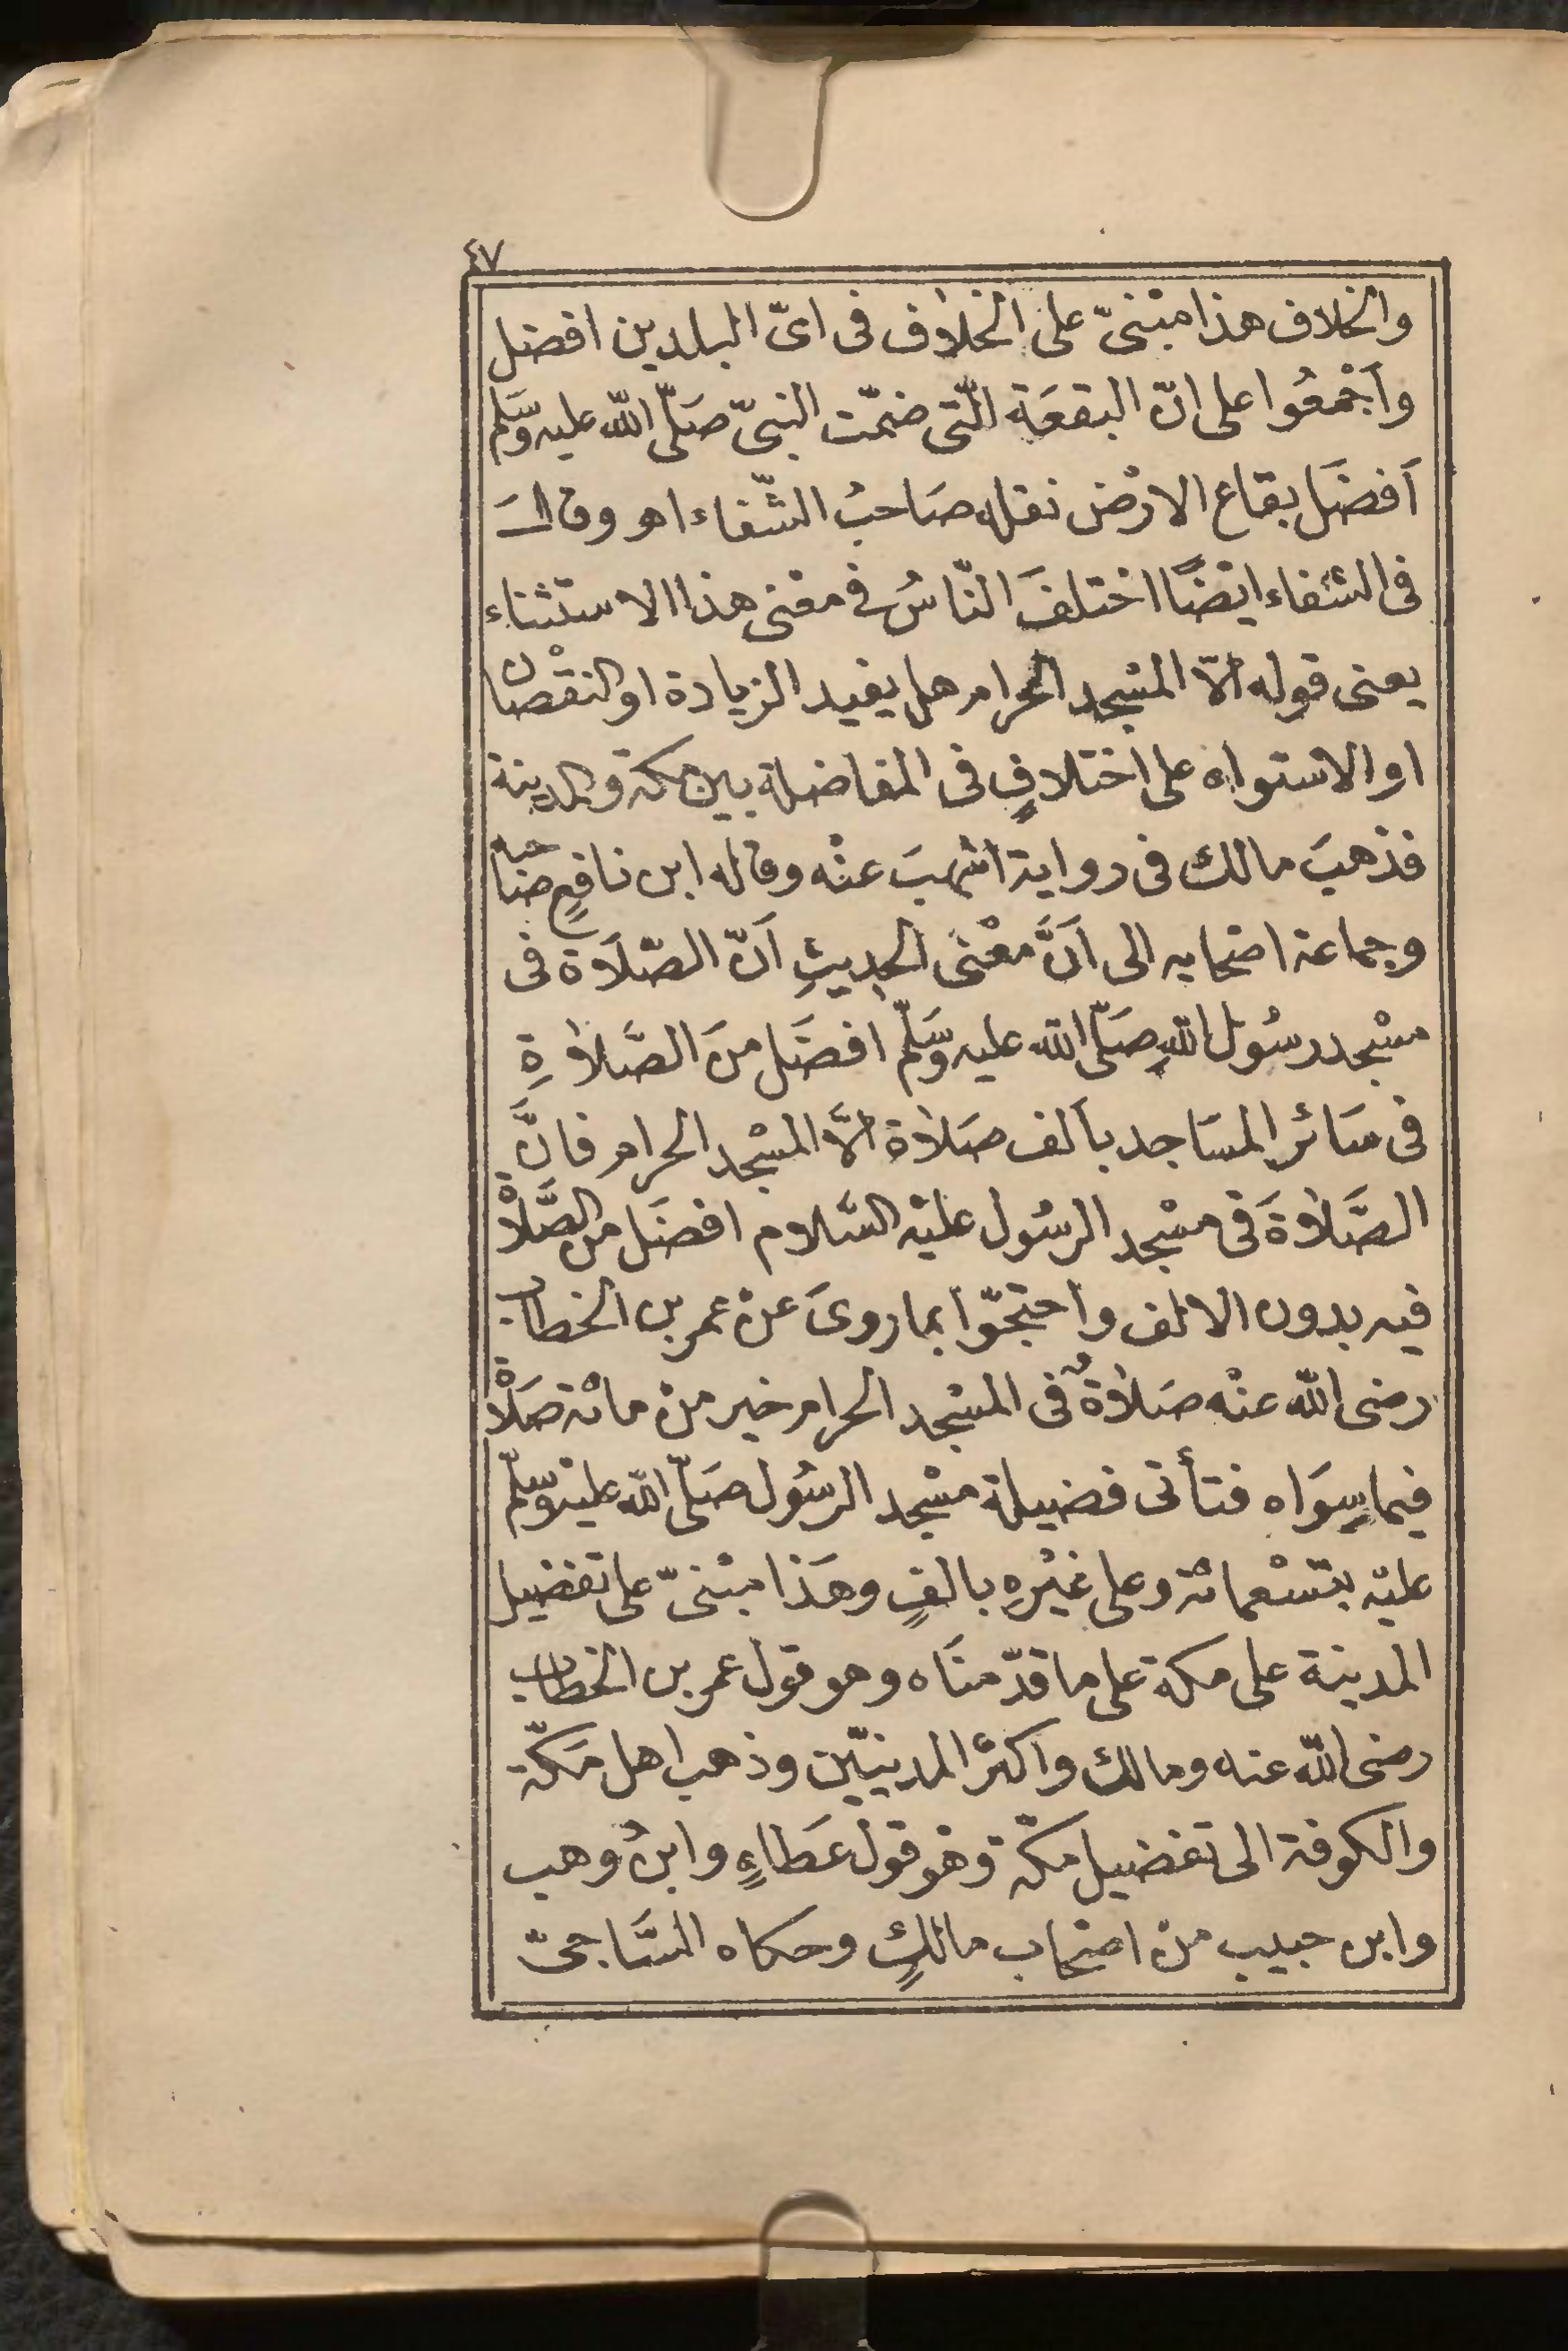 ٤٧
والخلاف هذا مبْنىّ على الخلاف فى اىّ البلدين افضل
وَاَجْمعُوا على انّ البقعَة الّتى ضمّت النبىّ صَلّى اللّه عليه وسَلّم
اَفضَل بقاع الارْض نقله صَاحبُ الشّفاء اهو وقالَ
فى الشّفاء ايْضًا اختلفَ النّاسُ فى معْنى هذا الاستثناء
يعنى قوله الّا المسْجد الحرام هل يفيد الزيادة او النقْصان
او الاستواء على اختلافٍ فى المفاضلة بين مكة والمدينة
فذهبَ مالك فى رواية اشهبَ عنْه وقاله ابن نافعٍ صَاحبه
وجماعة اصْحابه الى اَنَّ معْنَى الحديثِ اَنّ الصّلَاة فى
مسْجد رسُول اللّهِ صَلّى اللّه عليه وسَلّم افضَل منَ الصَّلاةِ
فى سَائر المسَاجد بألف صَلاة الّا المسْجد الحرام فانَّ
الصَّلاةَ فى مسْجد الرسُول عليْه السَّلام افضَل من الصَّلاة
فيه بدون الالف واحتجّوا بما روىَ عنْ عمر بن الخطاب
رضى اللّه عنْه صَلاةٌ فى المسْجد الحرام خير منْ مائة صَلاة
فيما سِوَاه فتأتى فضيلة مسْجد الرسُول صَلّى اللّه عليْه وسَلّم
عليْه بتسْعمائة وعلى غيْرهِ بالفٍ وهَذا مبْنىّ على تفضيل
المدينة على مكة على ما قدّمنَاه وهو قول عمر بن الخطاب
رضى اللّه عنه ومالك واكثرُ المدنيّين وذهب اهل مَكّة
والكوفة الى تفضيل مكّة وهو قول عَطاءٍ وابنُ وهب
وابن حبيب منْ اصْحاب مالكٍ وحكاه السَّاجىّ